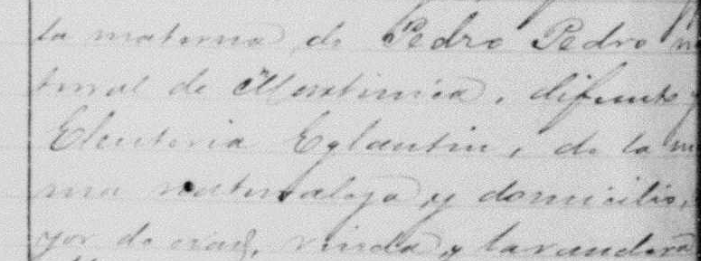 la materna de Pedro Pedro na
tural de Martinica, difunto y
Eleuteria Eglantin, de la m
ma naturaleza y domicilio,
yor de edad, viuda y lavandera